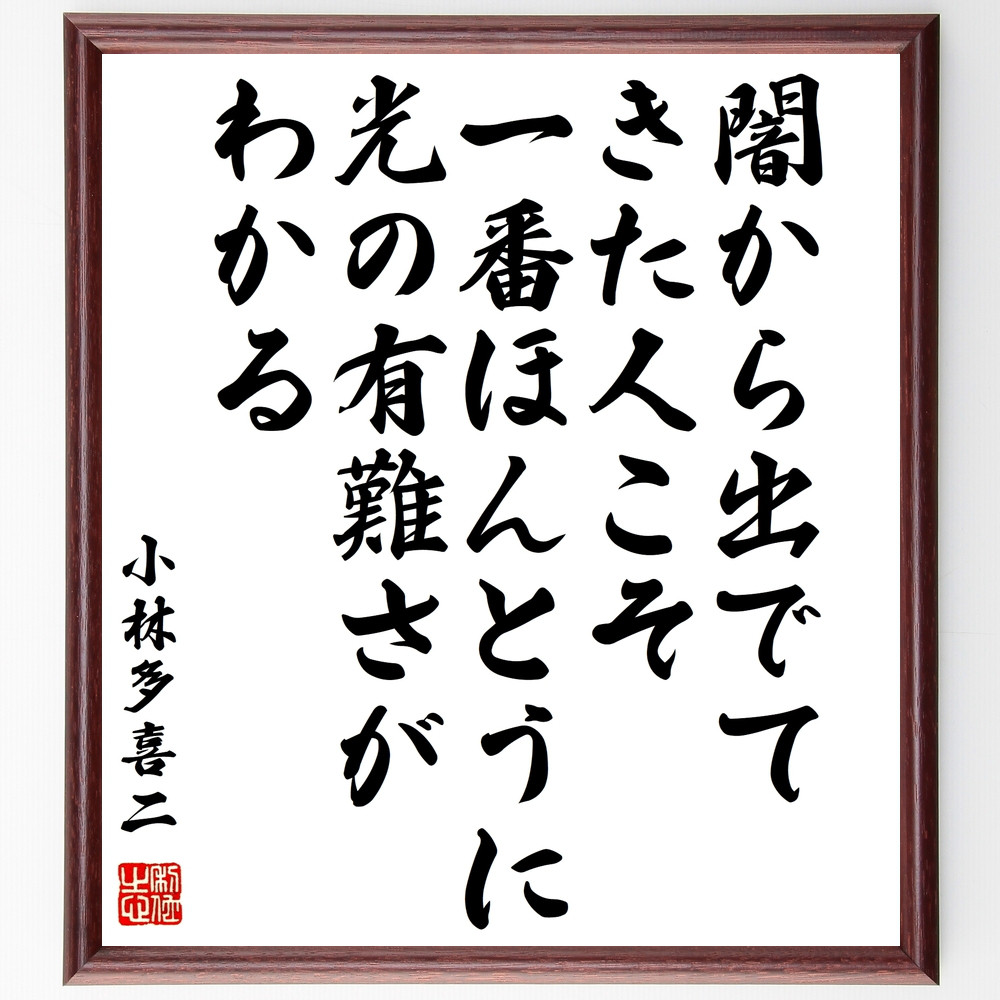 闇から出でて
きた人こそ
一番ほんとうに
光の有難さが
わかる
小林多喜二